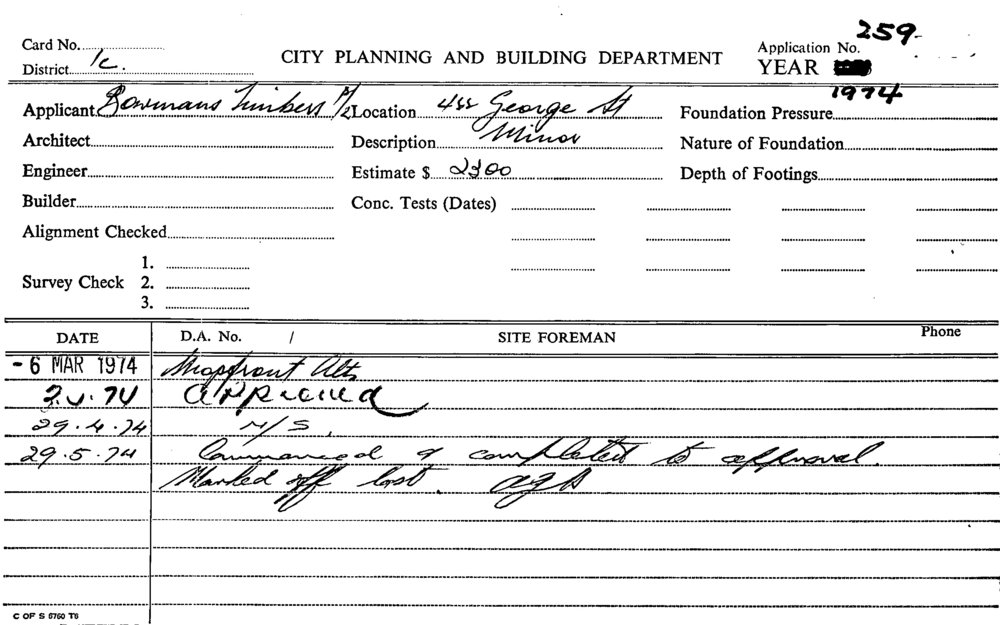 Card No. 259
District 1c. CITY PLANNING AND BUILDING DEPARTMENT Application No.
YEAR 1974
Applicant Bowmans Timbers P/L Location 4 George St Foundation Pressure
Architect Description Minor Nature of Foundation
Engineer Estimate $ 2300 Depth of Footings
Builder Conc. Tests (Dates)
Alignment Checked
1.
Survey Check 2.
3.
DATE D.A. No. / SITE FOREMAN Phone
- 6 MAR 1974 Shopfront Alts
74 approved
29.4.74 N/S.
29.5.74 Commenced & completed to approval.
Marked off
C OF S 6760 T6